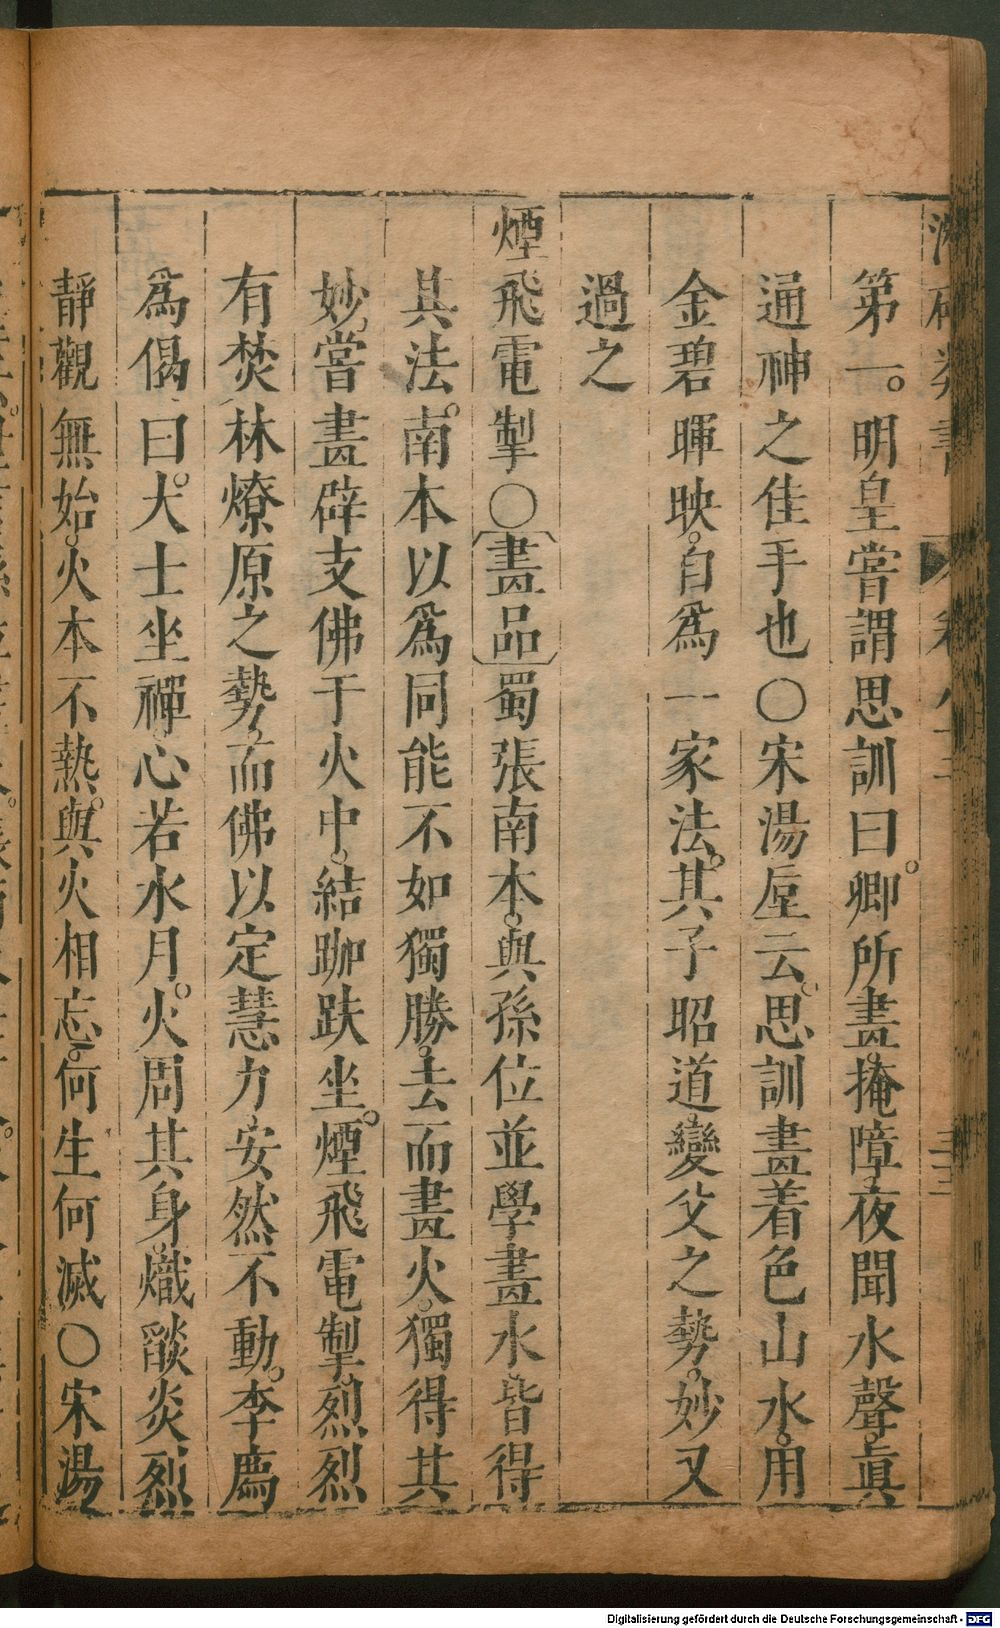 第一。明皇嘗謂思訓曰。卿所畫掩障。夜聞水聲。眞
通神之佳手也〇宋湯垕云。思訓畫着色山水。用
金碧暉映。自爲一家法。其子昭道。變父之勢。妙又
過之
煙飛電掣〇〔畫品〕蜀張南本。與孫位並學畫水。皆得
其法。南本以爲同能不如獨勝。去而畫火。獨得其
妙。嘗畫辟支佛于火中。結跏趺坐。煙飛電掣。烈烈
有焚林燎原之勢。而佛以定慧力。安然不動。李廌
爲偈曰。大士坐禪。心若水月。火周其身。熾燄炎烈
靜觀無始。火本不熱。與火相忘。何生何滅〇宋湯
Digitalisierung gefördert durch die Deutsche Forschungsgemeinschaft - DFG